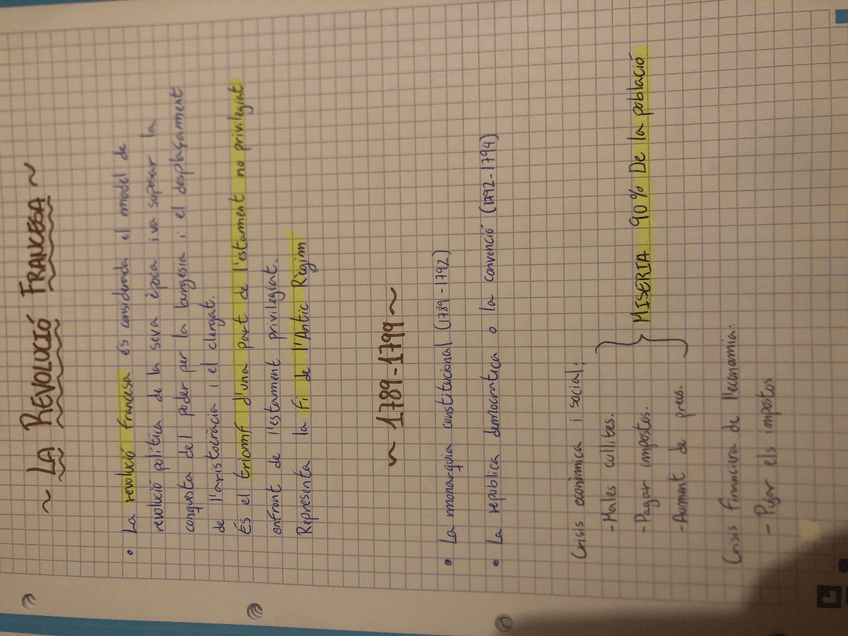 ~ LA REVOLUCIÓ FRANCESA ~
• La revolució francesa és considerada el model de
revolució política de la seva època i va suposar la
conquesta del poder per la burgesia i el desplaçament
de l'aristocràcia i el clergat.
És el triomf d'una part de l'estament no privilegiat
enfront de l'estament privilegiat.
Representa la fi de l'Antic Règim
~ 1789-1799 ~
• La monarquia constitucional (1789-1792)
• La republica democratica o la convenció (1792-1794)
Crisis econòmica i social:
- Males cullites.
- Pagar impostos.
- Aument de preus.
MISÈRIA 90% De la població
Crisis financera de l'economia:
- Pujar els impostos